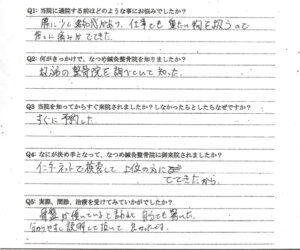 Q1: 当院に通院する前はどのような事にお悩みでしたか?
腰にずっと違和感があり、仕事でも重たい物を扱うので
常に痛みがでてきた。
Q2: 何がきっかけで、なつめ鍼灸整骨院を知りましたか?
近場の整骨院を調べていて知った。
Q3 当院を知ってからすぐ来院されましたか?しなかったらとしたらなぜですか?
すぐに予約した
Q4: なにが決め手となって、なつめ鍼灸整骨院に御来院されましたか?
インターネットで検索して上位の方に
でてきたから。
Q5: 実際、問診、治療を受けてみていかがでしたか?
骨盤が傾いていると言われ自分でも驚いた。
分かりやすく説明して頂いて良かったです。